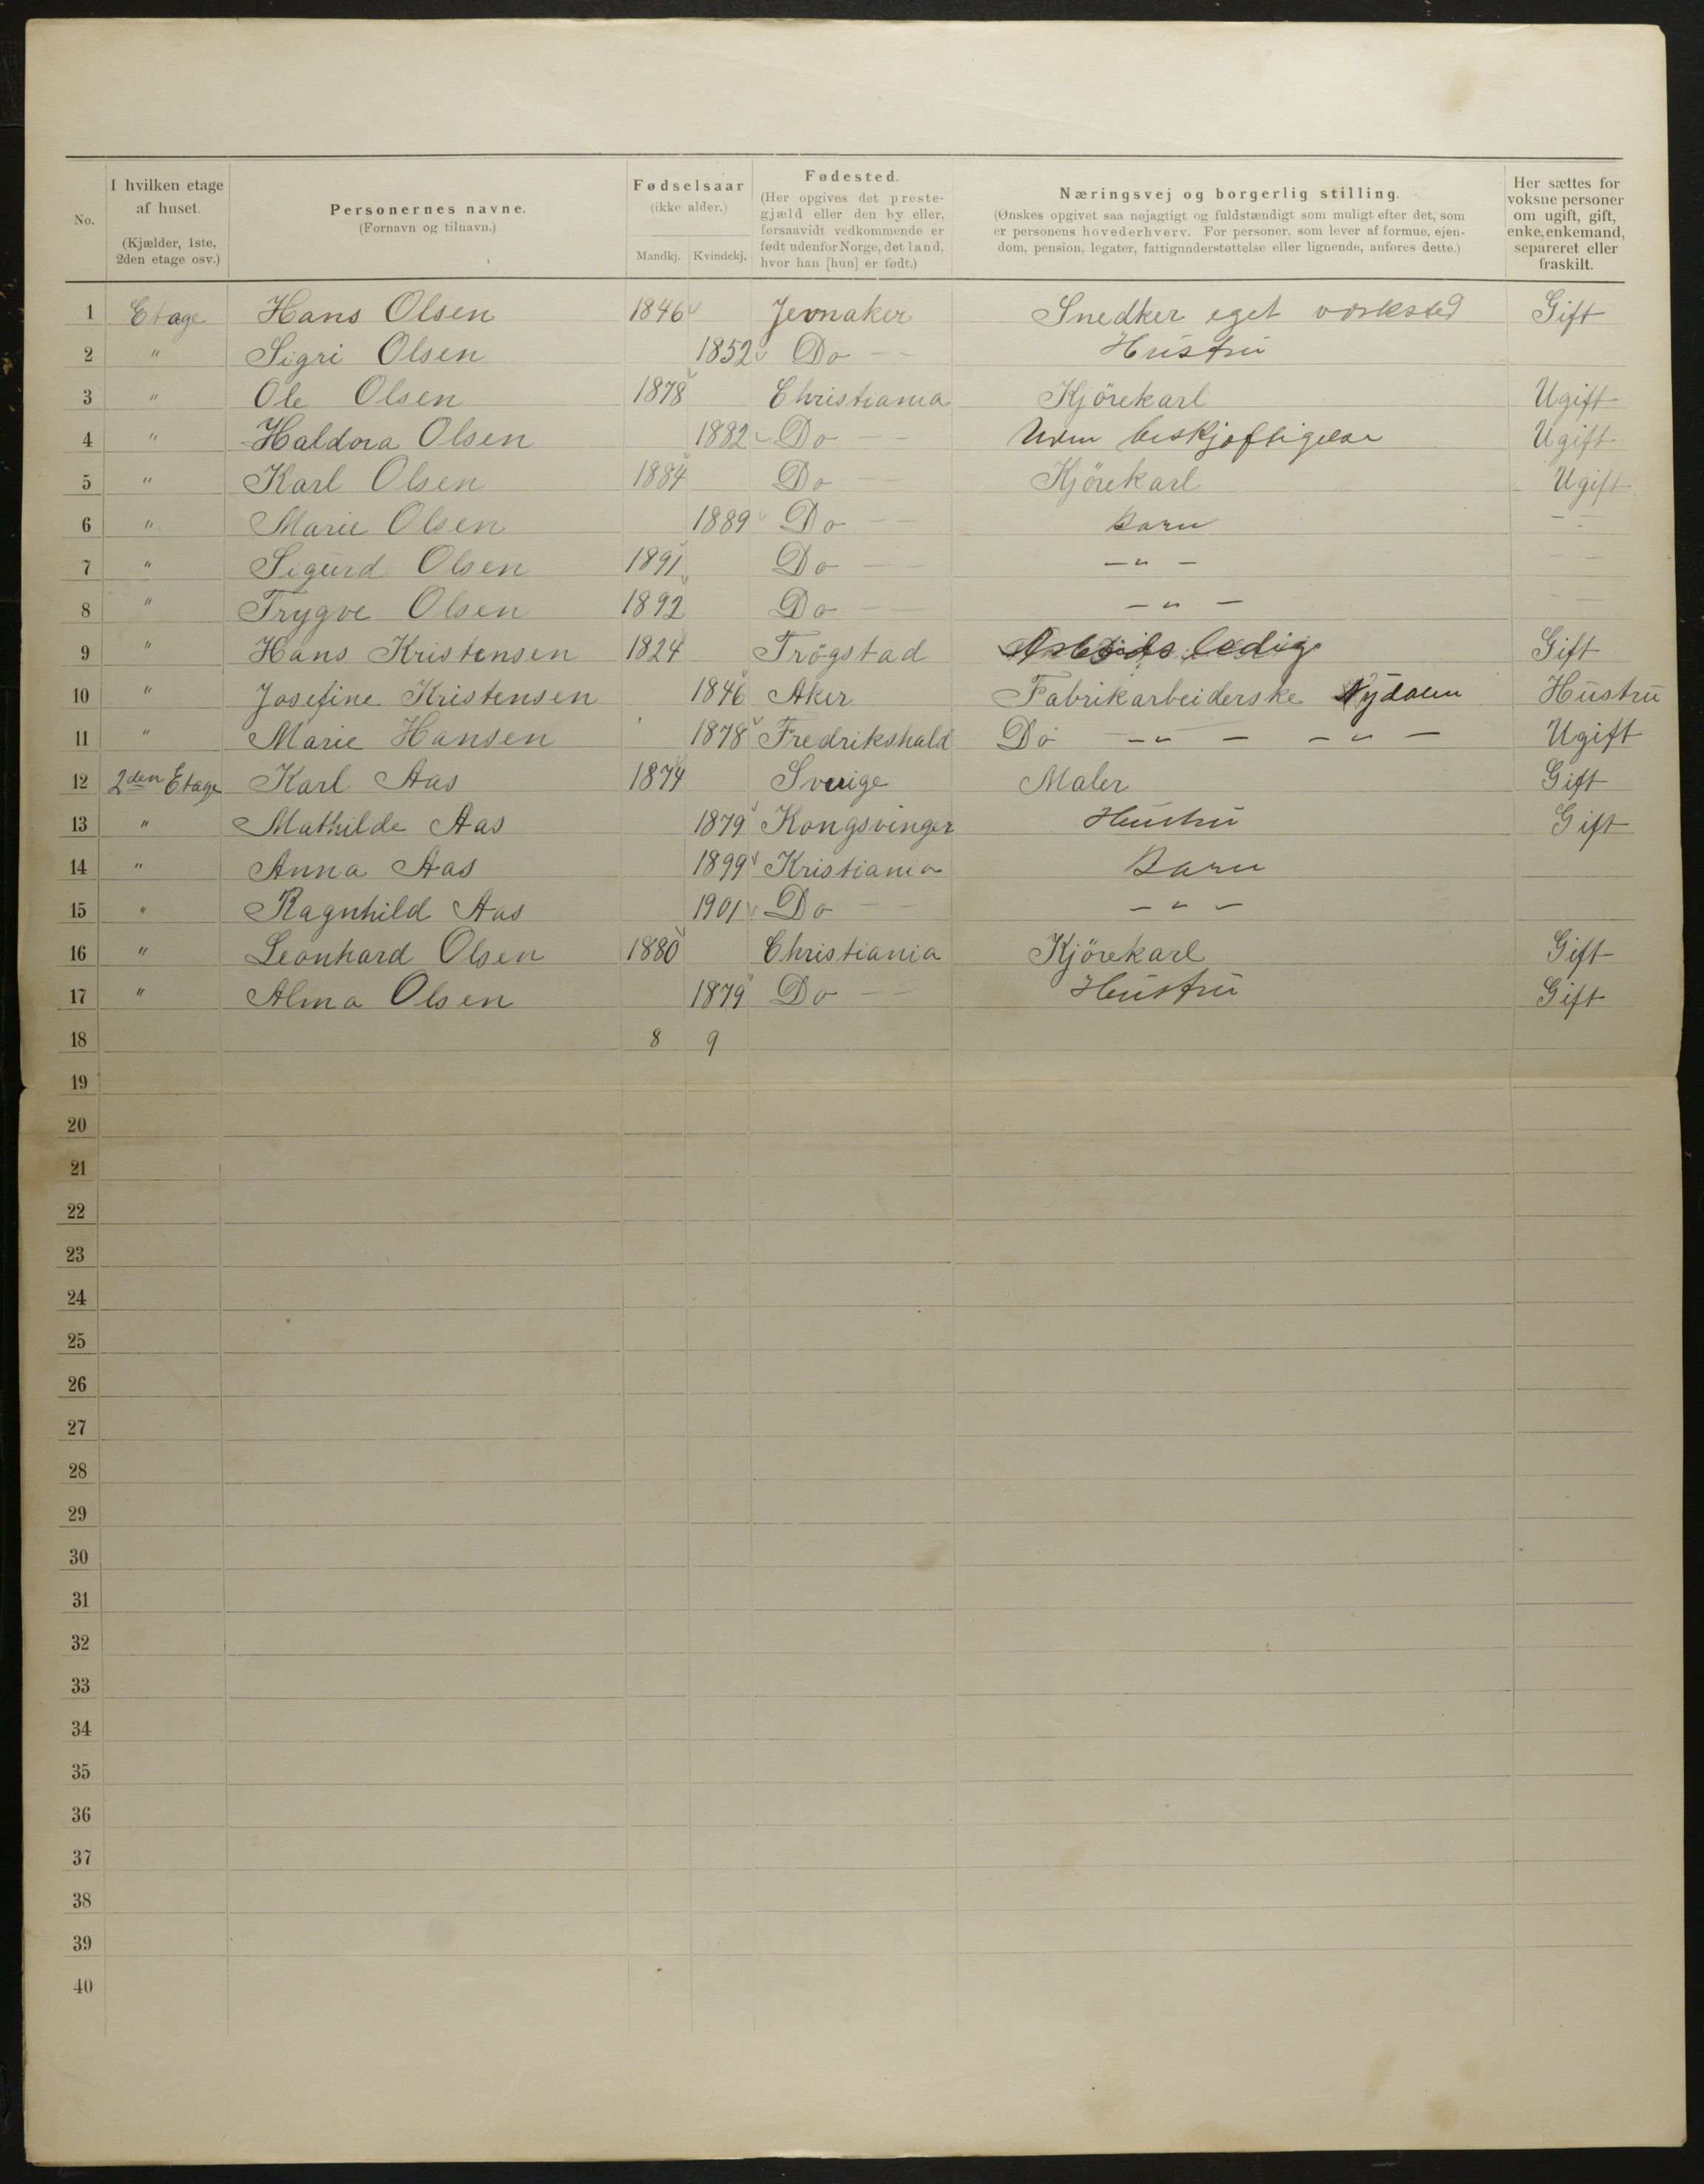 No.
I hvilken etage af huset. (Kjælder, 1ste, 2den etage osv.)
Personernes navne. (Fornavn og tilnavn.)
Fødselsaar (ikke alder.) Mandkj. Kvindekj.
Fødested. (Her opgives det prestegjæld eller den by eller, forsaavidt vedkommende er født udenfor Norge, det land, hvor han [hun] er født.)
Næringsvej og borgerlig stilling. (Ønskes opgivet saa nøjagtigt og fuldstændigt som muligt efter det, som er personens hovederhverv. For personer, som lever af formue, ejendom, pension, legater, fattigunderstøttelse eller lignende, anføres dette.)
Her sættes for voksne personer om ugift, gift, enke, enkemand, separeret eller fraskilt.
1 Etage Hans Olsen 1846 Jevnaker Snedker eget værksted Gift
2 " Sigri Olsen 1852 Do — Hustru
3 " Ole Olsen 1878 Christiania Kjörekarl Ugift
4 " Haldora Olsen 1882 Do — Uden beskjæftigelse Ugift
5 " Karl Olsen 1884 Do — Kjörekarl Ugift
6 " Marie Olsen 1889 Do — Barn — —
7 " Sigurd Olsen 1891 Do — — " — — —
8 " Trygve Olsen 1892 Do — — " — — —
9 " Hans Kristensen 1824 Trögstad Arbeids ledig Gift
10 " Josefine Kristensen 1846 Aker Fabrikarbeiderske Nydalen Hustru
11 " Marie Hansen 1878 Fredrikshald Do — " — — " — Ugift
12 2den Etage Karl Aas 1874 Sverige Maler Gift
13 " Mathilde Aas 1879 Kongsvinger Hustru Gift
14 " Anna Aas 1899 Kristiania Barn
15 " Ragnhild Aas 1901 Do — — " —
16 " Leonhard Olsen 1880 Christiania Kjörekarl Gift
17 " Alma Olsen 1879 Do — Hustru Gift
18 8 9
19
20
21
22
23
24
25
26
27
28
29
30
31
32
33
34
35
36
37
38
39
40